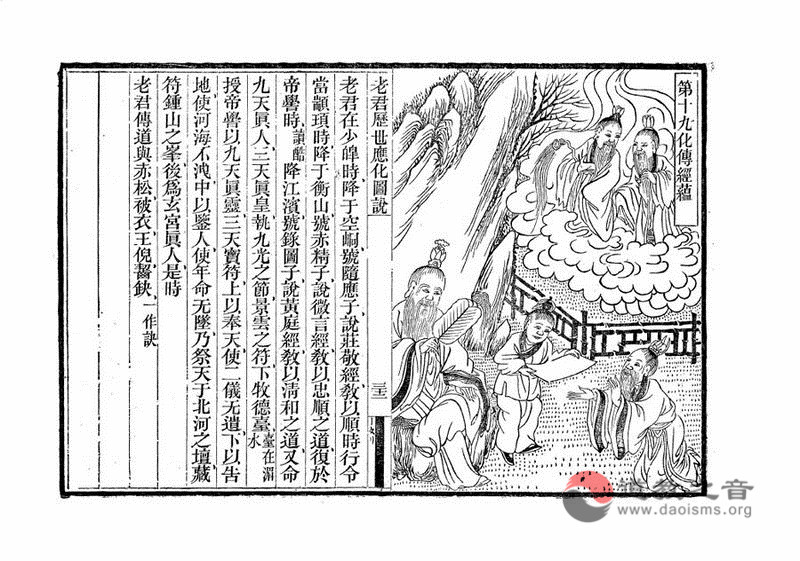 第十九化傳經蘊
老君歷世應化圖說
老君在少皥時降于空峒號隨應子說莊敬經敎以順時行令
當顓頊時降于衡山號赤精子說微言經敎以忠順之道復於
帝嚳時讀酷降江濱號錄圖子說黃庭經敎以淸和之道又命
九天眞人三天眞皇執九光之節景雲之符下牧德臺臺在渭水
授帝嚳以九天眞靈三天寶符上以奉天使二儀无遺下以告
地使河海不洩中以鑒人使年命无墜乃祭天于北河之壇藏
符鍾山之峯後爲玄宮眞人是時
老君傳道與赤松被衣王倪齧鈌一作訣
之音
www.daoisms.org